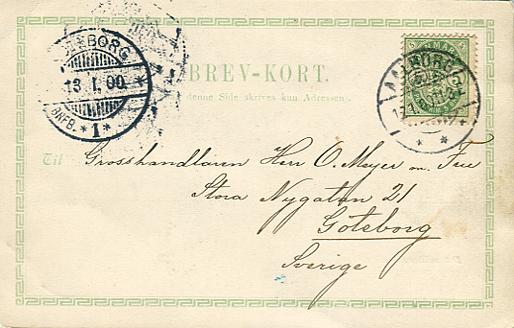 BREV-KORT.
denne Side skrives kun Adressen.
13. 1. 00.
BNFB.
*1*
DANMARK
5
Til Grosshandlaren Herr O. Meyer m. Fru
Stora Nygatan 21
Göteborg
Sverige